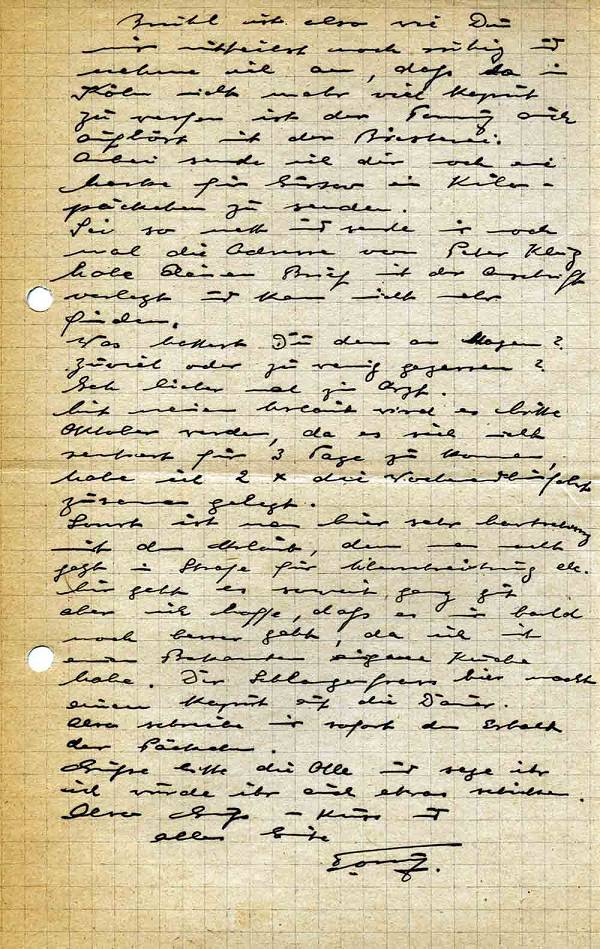 Brühl ist also wie Du
mir mitteilst noch ruhig und
nehme ich an, daß da in
Köln nicht mehr viel kaput
zu werfen ist der Tommy sich
auflöst mit der Biesterei.
Anbei sende ich dir noch eine
Marke für ein Kilo-
päckchen zu senden.
Sei so nett und sende mir noch
mal die Adresse von Peter
habe Deinen Brief mit der Anschrift
verlegt und kann nicht mehr
finden.
Was hattest Du denn am Magen?
Zuviel oder zu wenig gegessen?
Geh lieber mal zum Arzt.
Mit meinem Urlaub wird es Mitte
Oktober werden, da es sich nicht
rentiert für 3 Tage zu kommen,
habe ich 2 x die Wochenendheimfahrt
zusammen gelegt.
Sonst ist man hier sehr
mit dem Urlaub, denn man
in Strafe für etc.
Mir geht es soweit ganz gut
aber ich hoffe, daß es mir bald
noch besser geht, da ich mit
einem Bekannten eigene Küche
habe. Der Schlangenfrass hier macht
einen kaput auf die Dauer.
Also schreibe mir sofort den Erhalt
der Päckchen.
Grüße bitte die Olle und sage ihr
ich würde ihr auch etwas schicken.
Also Gruß - Kuss und
alles Gute
Tomy.